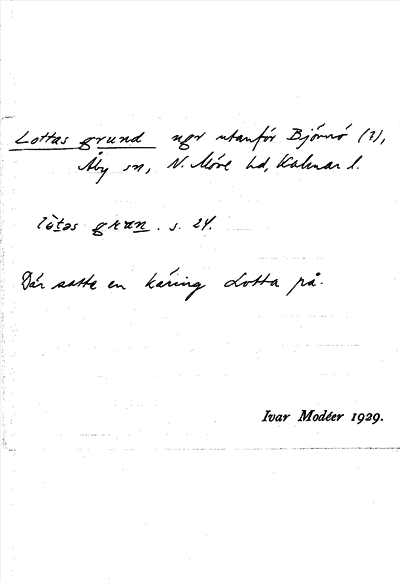 Lottas grund ngr utanför Björnö (?),
Åby sn, N. Möre hd, Kalmar l.
lòtas grun. s. 24.
Där satte en käring Lotta på.
Ivar Modéer 1929.